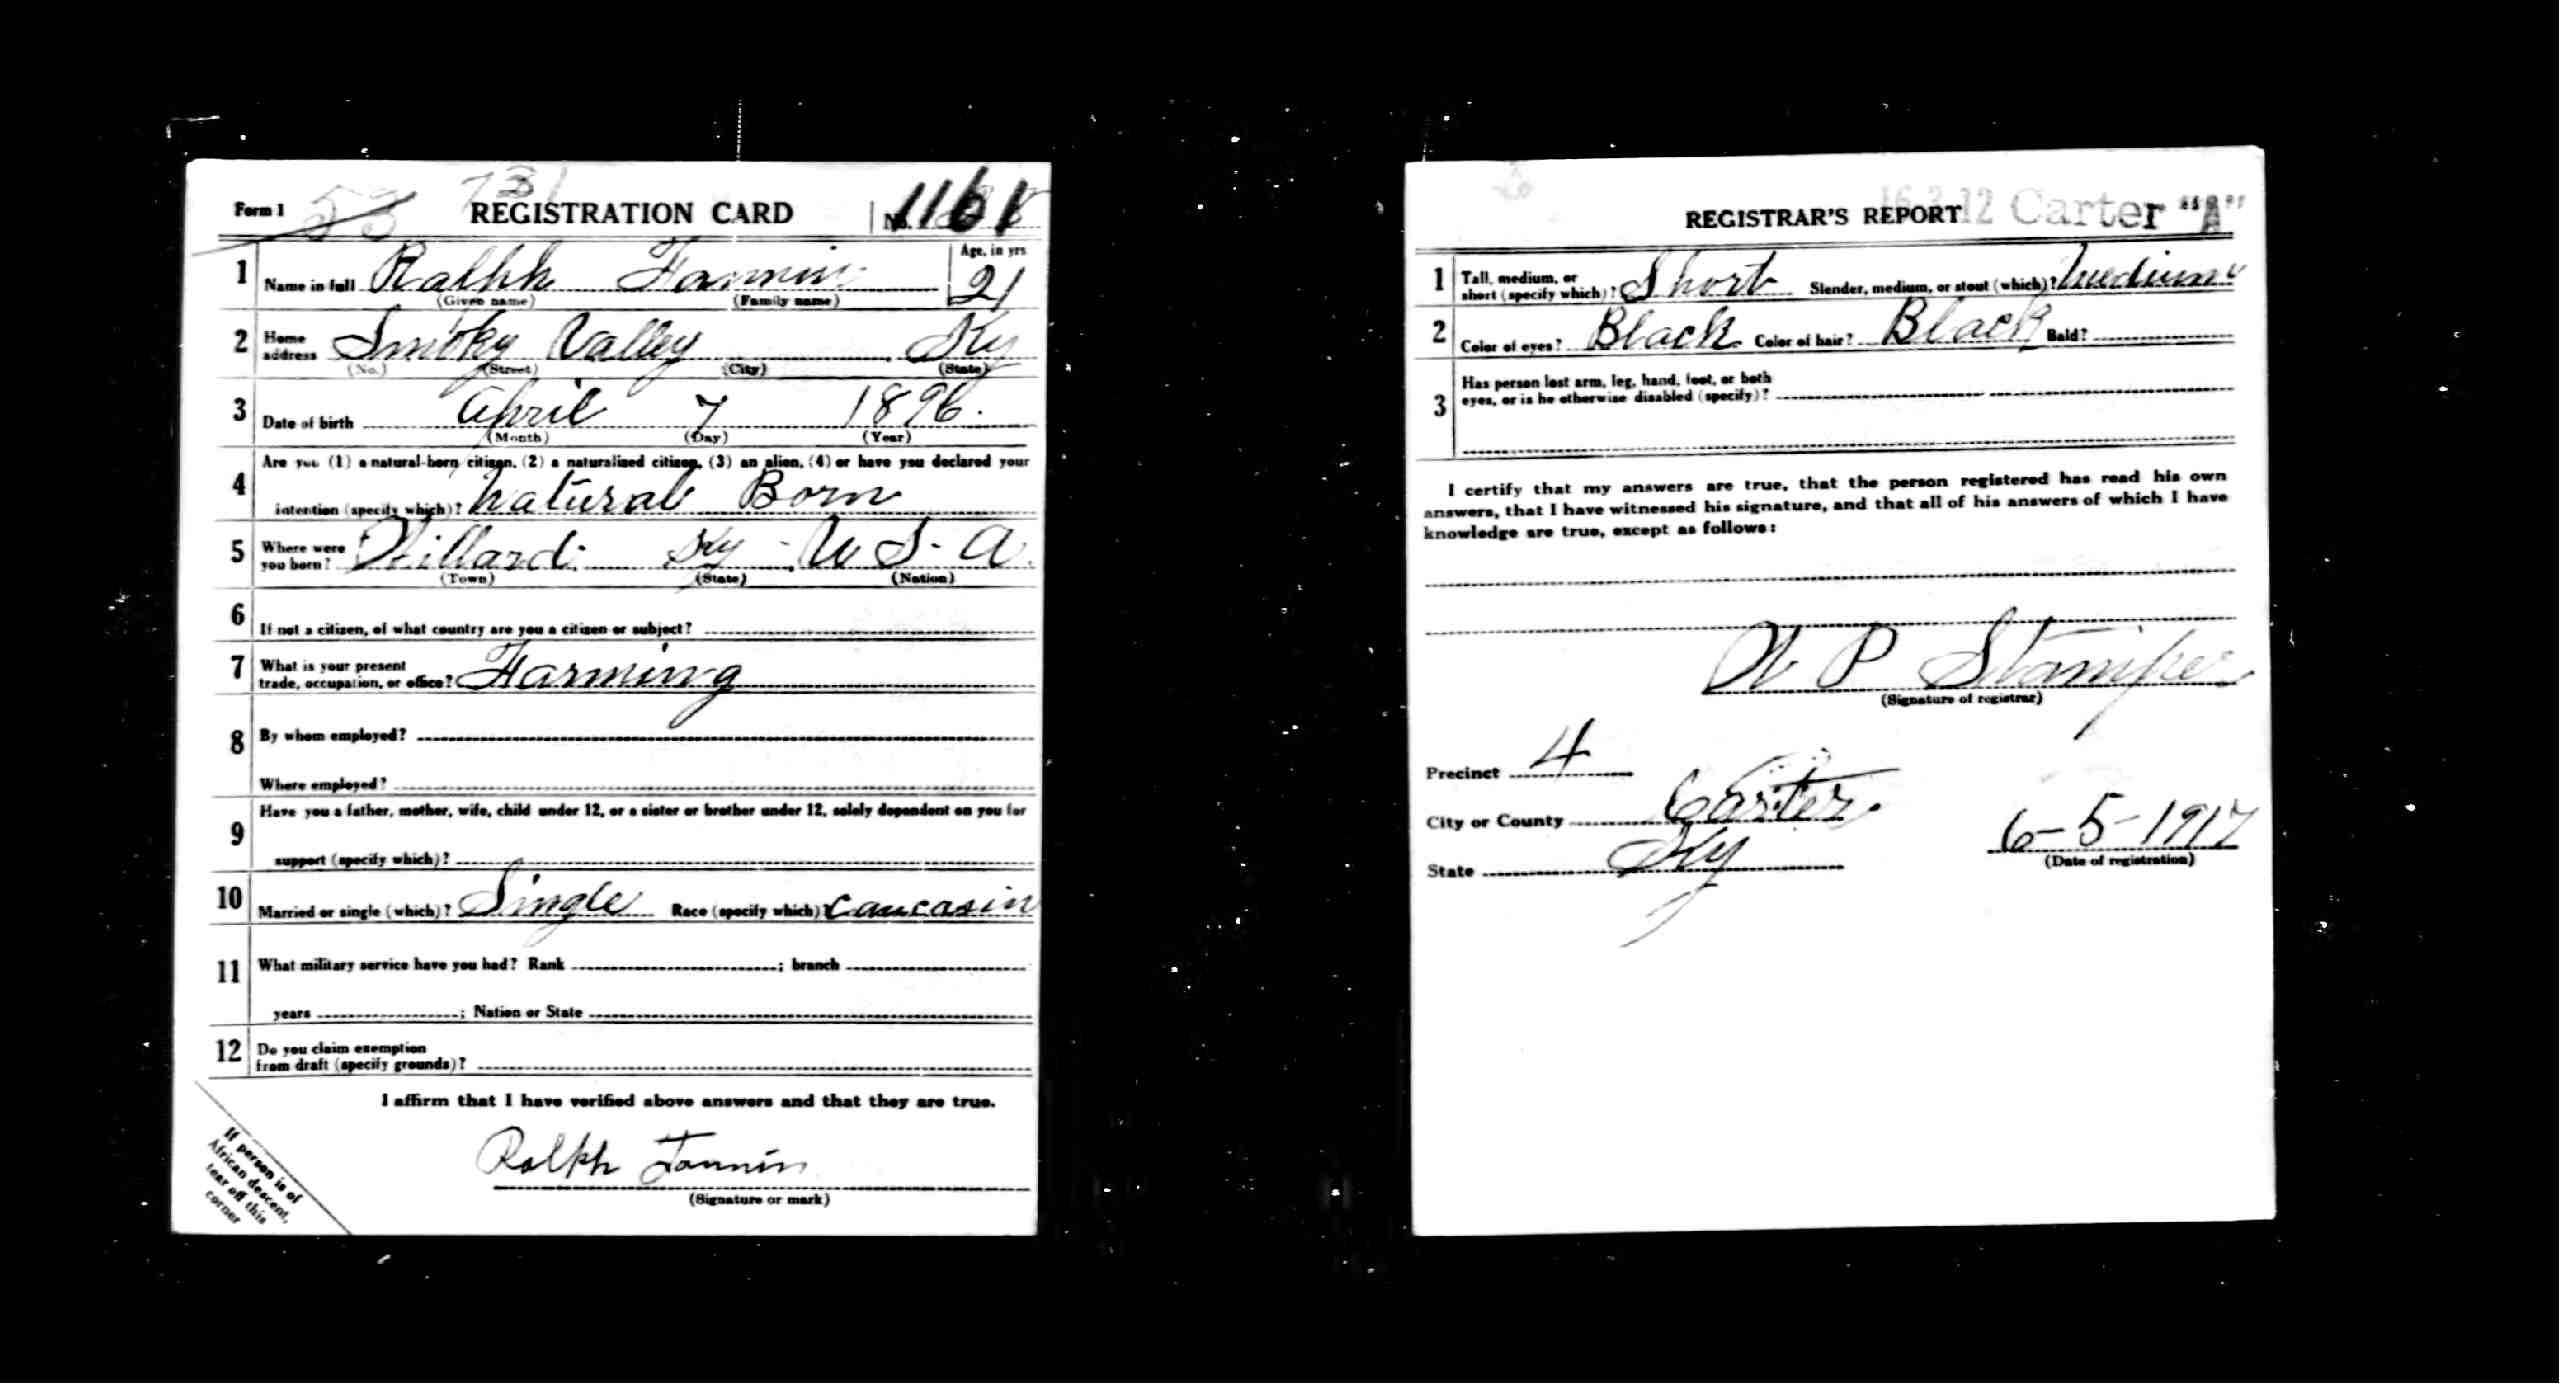 Form 1 53 731 REGISTRATION CARD No. 1161
1 Name in full Ralph Fannin Age, in yrs 21
(Given name) (Family name)
2 Home address Smoky Valley Ky
(No.) (Street) (City) (State)
3 Date of birth April 7 1896.
(Month) (Day) (Year)
4 Are you (1) a natural-born citizen, (2) a naturalized citizen, (3) an alien, (4) or have you declared your
intention (specify which)? Natural Born
5 Where were you born? Willard Ky - U S - A.
(Town) (State) (Nation)
6 If not a citizen, of what country are you a citizen or subject?
7 What is your present
trade, occupation, or office? Farming
8 By whom employed?
Where employed?
9 Have you a father, mother, wife, child under 12, or a sister or brother under 12, solely dependent on you for
support (specify which)?
10 Married or single (which)? Single Race (specify which)? Caucasin
11 What military service have you had? Rank ; branch
years ; Nation or State
12 Do you claim exemption
from draft (specify grounds)?
I affirm that I have verified above answers and that they are true.
Ralph Fannin
(Signature or mark)
If person is of
African descent,
tear off this
corner
REGISTRAR'S REPORT 16-2-12 Carter "A"
1 Tall, medium, or
short (specify which)? Short Slender, medium, or stout (which)? Medium
2 Color of eyes? Black Color of hair? Black Bald?
3 Has person lost arm, leg, hand, foot, or both
eyes, or is he otherwise disabled (specify)?
I certify that my answers are true, that the person registered has read his own
answers, that I have witnessed his signature, and that all of his answers of which I have
knowledge are true, except as follows:
W P Stamper
(Signature of registrar)
Precinct 4
City or County Carter.
State Ky
6-5-1917
(Date of registration)